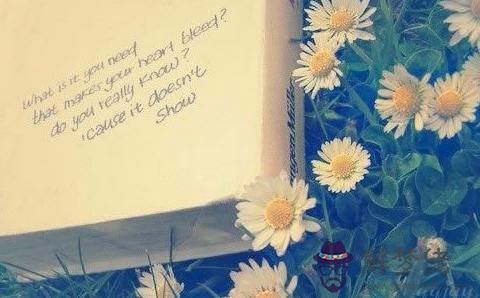 What is it you need
that makes your heart bleed?
do you really know?
'cause it doesn't
Show